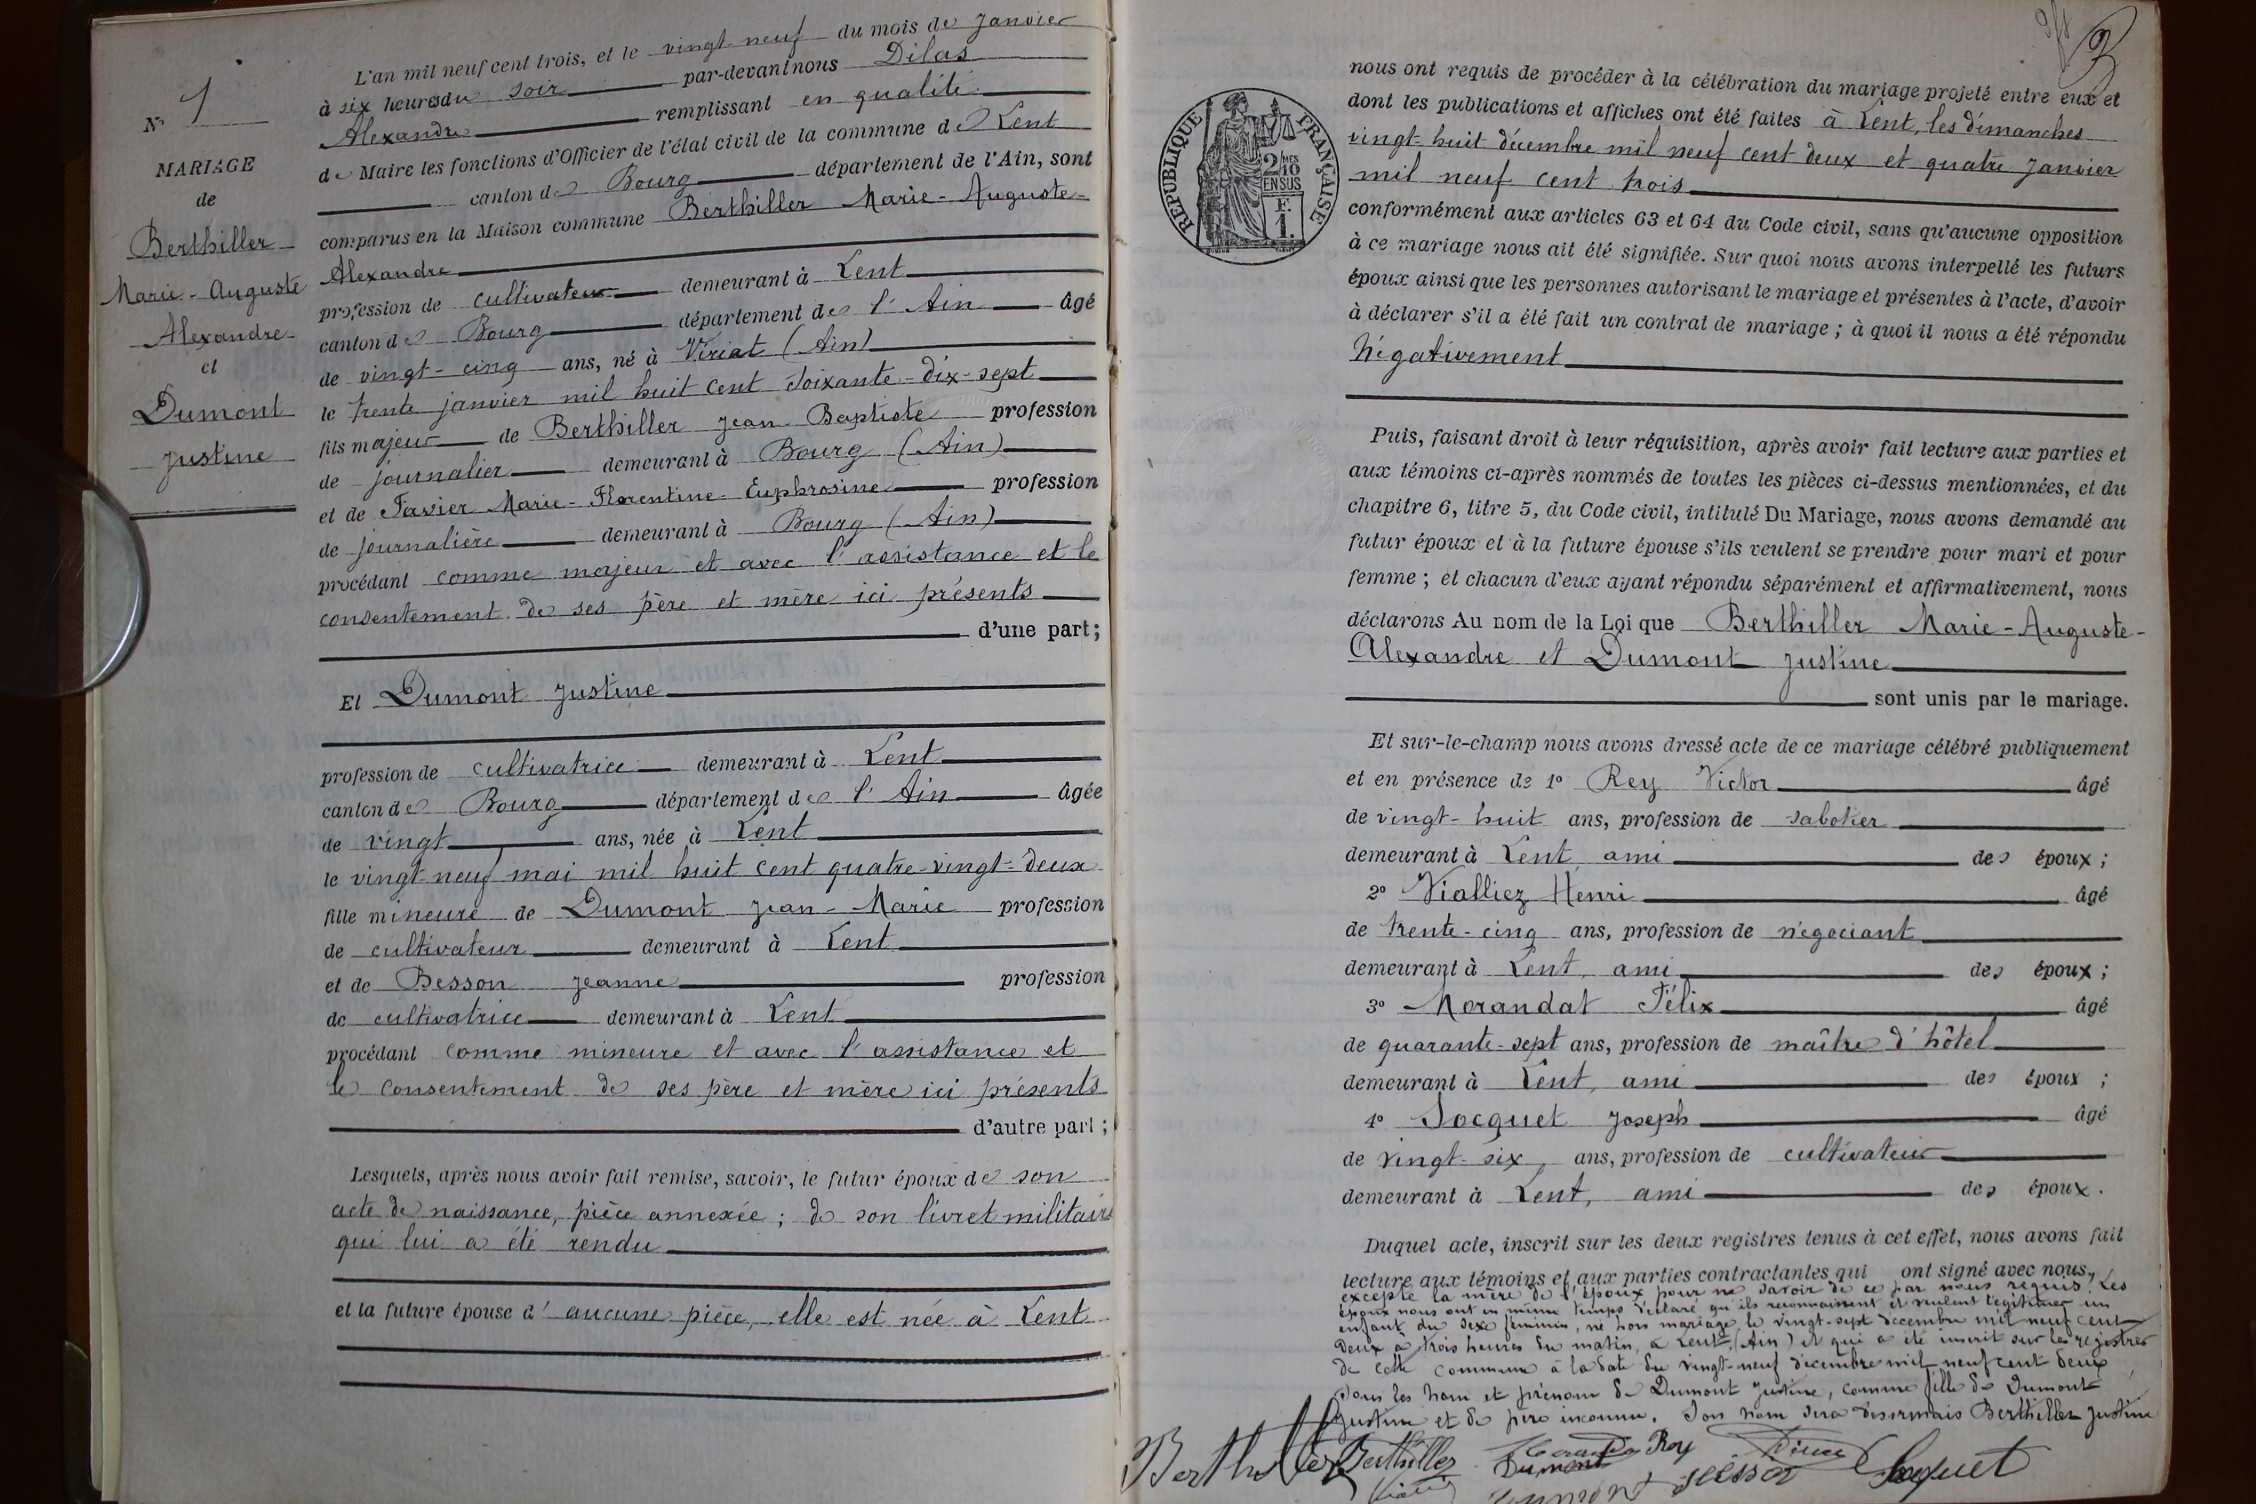 N° 1
MARIAGE
de
Berthiller
Marie-Auguste
Alexandre
et
Dumont
Justine
L'an mil neuf cent trois, et le vingt neuf du mois de Janvier
à six heures du soir par-devant nous Dilas
Alexandre remplissant en qualité
de Maire les fonctions d'Officier de l'état civil de la commune de Lent
canton de Bourg département de l'Ain, sont
comparus en la Maison commune Berthiller Marie-Auguste-
Alexandre
profession de cultivateur demeurant à Lent
canton de Bourg département de l'Ain âgé
de vingt-cinq ans, né à Viriat (Ain)
le trente janvier mil huit cent soixante-dix-sept
fils majeur de Berthiller Jean Baptiste profession
de journalier demeurant à Bourg (Ain)
et de Favier Marie-Florentine-Euphrosine profession
de journalière demeurant à Bourg (Ain)
procédant comme majeur et avec l'assistance et le
consentement de ses père et mère ici présents
d'une part;
Et Dumont Justine
profession de cultivatrice demeurant à Lent
canton de Bourg département de l'Ain âgée
de vingt ans, née à Lent
le vingt neuf mai mil huit cent quatre-vingt-deux
fille mineure de Dumont Jean-Marie profession
de cultivateur demeurant à Lent
et de Besson Jeanne profession
de cultivatrice demeurant à Lent
procédant comme mineure et avec l'assistance et
le consentement de ses père et mère ici présents
d'autre part;
Lesquels, après nous avoir fait remise, savoir, le futur époux de son
acte de naissance, pièce annexée; de son livret militaire
qui lui a été rendu
et la future épouse d'aucune pièce, elle est née à Lent
3
RÉPUBLIQUE FRANÇAISE
2 MES
10
EN SUS
F.
1.
nous ont requis de procéder à la célébration du mariage projeté entre eux et
dont les publications et affiches ont été faites à Lent, les dimanches
vingt-huit décembre mil neuf cent deux et quatre Janvier
mil neuf cent trois
conformément aux articles 63 et 64 du Code civil, sans qu'aucune opposition
à ce mariage nous ait été signifiée. Sur quoi nous avons interpellé les futurs
époux ainsi que les personnes autorisant le mariage et présentes à l'acte, d'avoir
à déclarer s'il a été fait un contrat de mariage; à quoi il nous a été répondu
Négativement
Puis, faisant droit à leur réquisition, après avoir fait lecture aux parties et
aux témoins ci-après nommés de toutes les pièces ci-dessus mentionnées, et du
chapitre 6, titre 5, du Code civil, intitulé Du Mariage, nous avons demandé au
futur époux et à la future épouse s'ils veulent se prendre pour mari et pour
femme; et chacun d'eux ayant répondu séparément et affirmativement, nous
déclarons Au nom de la Loi que Berthiller Marie-Auguste-
Alexandre et Dumont Justine
sont unis par le mariage.
Et sur-le-champ nous avons dressé acte de ce mariage célébré publiquement
et en présence de 1° Rey Victor âgé
de vingt-huit ans, profession de sabotier
demeurant à Lent, ami des époux;
2° Vialliez Henri âgé
de trente-cinq ans, profession de négociant
demeurant à Lent, ami des époux;
3° Morandat Félix âgé
de quarante-sept ans, profession de maître d'hôtel
demeurant à Lent, ami des époux;
4° Jocquet Joseph âgé
de vingt-six, ans, profession de cultivateur
demeurant à Lent, ami des époux.
Duquel acte, inscrit sur les deux registres tenus à cet effet, nous avons fait
lecture aux témoins et aux parties contractantes qui ont signé avec nous,
excepté la mère de l'époux pour ne savoir de ce par nous requis. Les
époux nous ont en même temps déclaré qu'ils reconnaissent et veulent légitimer un
enfant du sexe féminin, né hors mariage le vingt-sept décembre mil neuf cent
deux à trois heures du matin, à Lent (Ain) et qui a été inscrit sur les registres
de cette commune à la date du vingt-neuf décembre mil neuf cent deux
sous les nom et prénom de Dumont Justine, comme fille de Dumont
Justine et de père inconnu. Son nom sera désormais Berthiller Justine
Berthiller Berthiller Rey
Dumont Besson Jocquet